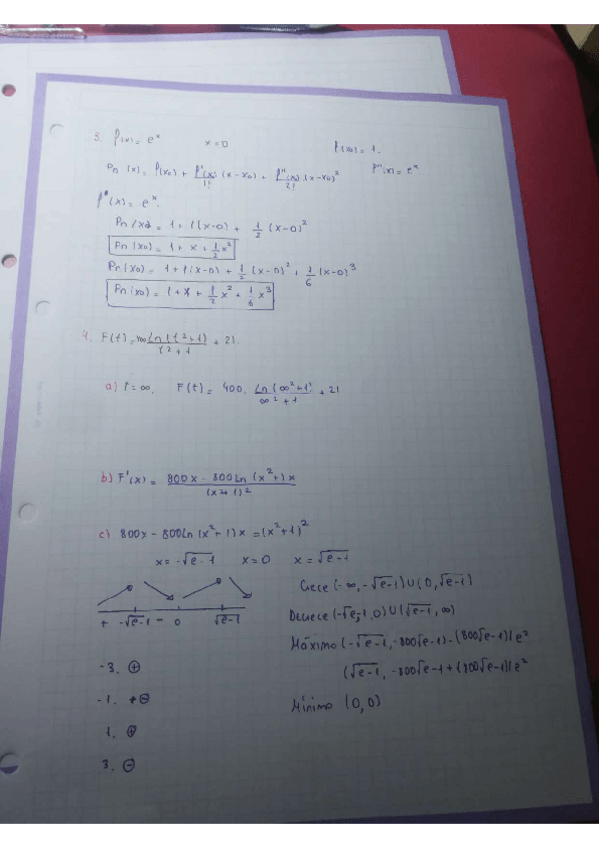 3. f(x) = e^x    x = 0    f(x₀) = 1.
Pn (x) = f(x₀) + f'(x)/1! (x-x₀) + f''(x)/2! (x-x₀)²    f''(x) = e^x
f'(x) = e^x.
Pn(x₀) = 1 + 1(x-0) + 1/2 (x-0)²
Pn(x₀) = 1 + x + 1/2 x²
Pn(x₀) = 1 + 1(x-0) + 1/2 (x-0)² + 1/6 (x-0)³
Pn(x₀) = 1 + x + 1/2 x² + 1/6 x³
4. F(t) = 400 Ln(t²+1)/t²+1 + 21.
a) t = ∞.    F(t) = 400. Ln(∞²+1)/∞²+1 + 21
b) F'(x) = 800x - 800Ln(x²+1)x/(x²+1)²
c) 800x - 800Ln(x²+1)x = (x²+1)²
x = -√e-1    x = 0    x = √e-1
Crece (-∞, -√e-1) U (0, √e-1)
+ -√e-1 - 0    √e-1
Decrece (-√e-1, 0) U (√e-1, ∞)
Máximo (-√e-1, -800√e-1) - (800√e-1)/e²
-3. ⊕
(√e-1, -800√e-1 + (800√e-1)/e²
-1. +⊖
Mínimo (0,0)
1. ⊕
3. ⊖